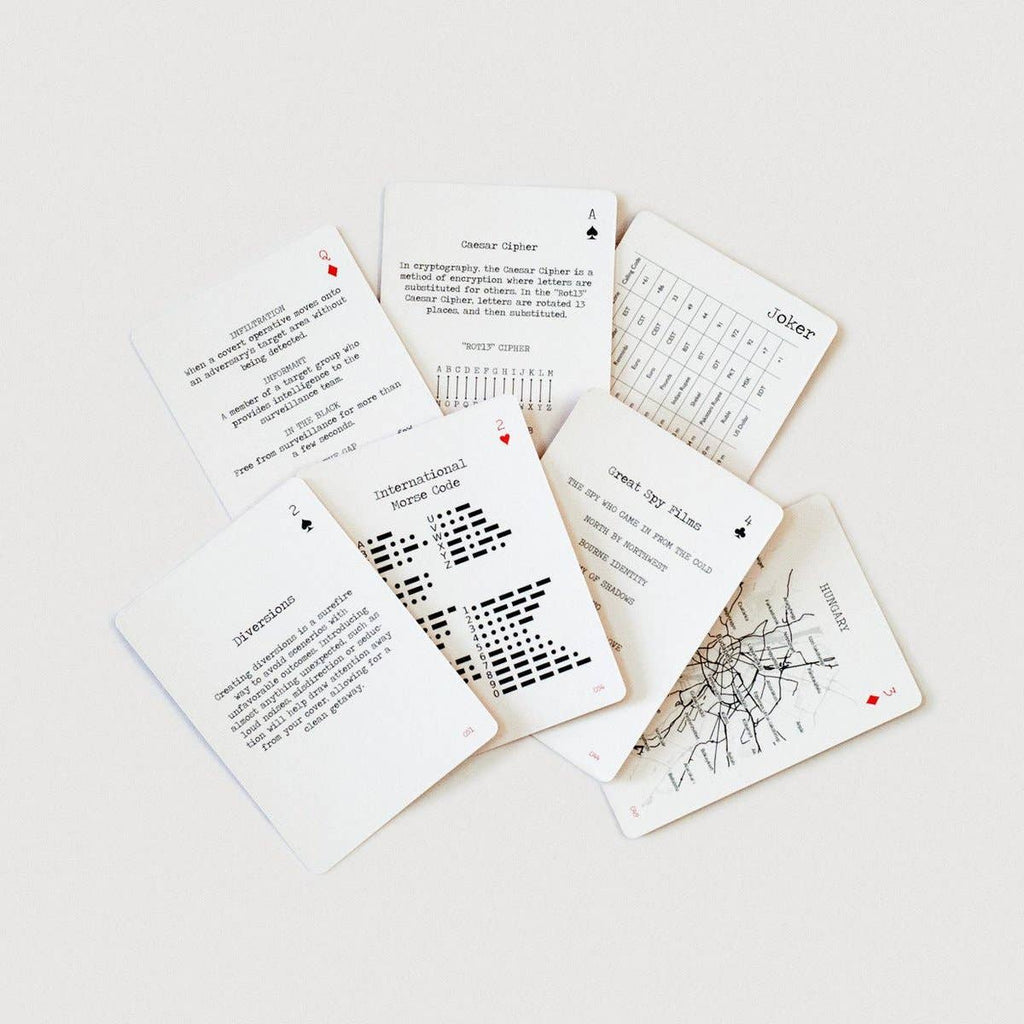 Q
INFILTRATION
When a covert operative moves onto
an adversary's target area without
being detected.
INFORMANT
A member of a target group who
provides intelligence to the
surveillance team.
IN THE BLACK
Free from surveillance for more than
a few seconds.
GAP
few
A
Caesar Cipher
In cryptography, the Caesar Cipher is a
method of encryption where letters are
substituted for others. In the "Rot13"
Caesar Cipher, letters are rotated 13
places, and then substituted.
"ROT13" CIPHER
A B C D E F G H I J K L M
N O P Q W X Y Z
Joker
Calling Code
+61
+86
33
49
44
91
972
92
+7
+1
EST
CST
CEST
BST
IST
IDT
PKT
MSK
EDT
Renminbi
Euro
Euro
Pounds
Indian Rupee
Shekel
Pakistani Rupee
Ruble
US Dollar
2
International
Morse Code
A
U
V
W
X
Y
Z
1
2
3
4
5
6
7
8
9
0
4
Great Spy Films
THE SPY WHO CAME IN FROM THE COLD
NORTH BY NORTHWEST
BOURNE IDENTITY
OF SHADOWS
2
Diversions
Creating diversions is a surefire
way to avoid scenarios with
unfavorable outcomes. Introducing
almost anything unexpected, such as
loud noises, misdirection or seduc-
tion will help draw attention away
from your cover, allowing for a
clean getaway.
051
HUNGARY
3